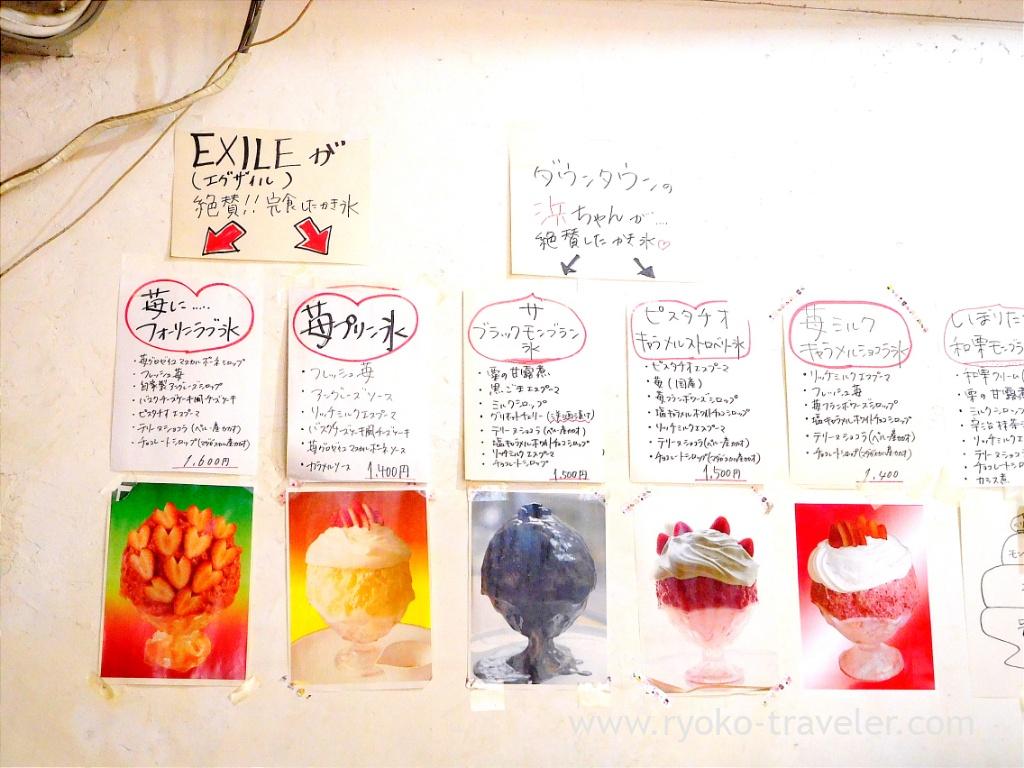 EXILEが
(エグザイル)
絶賛!!完食したかき氷
ダウンタウンの
浜ちゃんが....
絶賛したかき氷♡
苺に.....
フォーリンラブ氷
・苺グロゼイユマスカルポーネシロップ
・フレッシュ苺
・自家製アングレーズシロップ
・バスクチーズケーキ風チーズケーキ
・ピスタチオエスプーマ
・テリーヌショコラ(ペルー産カカオ)
・チョコレートシロップ(マダガスカル産カカオ)
1,600円
苺プリン氷
・フレッシュ苺
・アングレーズソース
・リッチミルクエスプーマ
・バスクチーズケーキ風チーズケーキ
・苺グロゼイユマスカルポーネソース
・カラメルソース
1,400円
ザ
ブラックモンブラン
氷
・栗の甘露煮
・黒ごまエスプーマ
・ミルクシロップ
・グリオットチェリー(洋酒漬け)
・テリーヌショコラ(ペルー産カカオ)
・塩キャラメルホワイトチョコシロップ
・リッチミルクエスプーマ
・チョコレートシロップ
1,500円
ピスタチオ
キャラメルストロベリー氷
・ピスタチオエスプーマ
・苺(国産)
・苺フランボワーズシロップ
・塩キャラメルホワイトチョコシロップ
・リッチミルクエスプーマ
・テリーヌショコラ(ペルー産カカオ)
・チョコレートシロップ(マダガスカル産カカオ)
1,500円
苺ミルク
キャラメルショコラ氷
・リッチミルクエスプーマ
・フレッシュ苺
・苺フランボワーズシロップ
・塩キャラメルホワイトチョコシロップ
・テリーヌショコラ(ペルー産カカオ)
・チョコレートシロップ(マダガスカル産カカオ)
1,400
しぼりた
和栗モンブラ
・和栗クリーム(
・栗の甘露煮
・ミルクシロッ
・宇治抹茶
・リッチミルクエ
・テリーヌショコ
・チョコレートシ
・カシス煮
www.ryoko-traveler.com